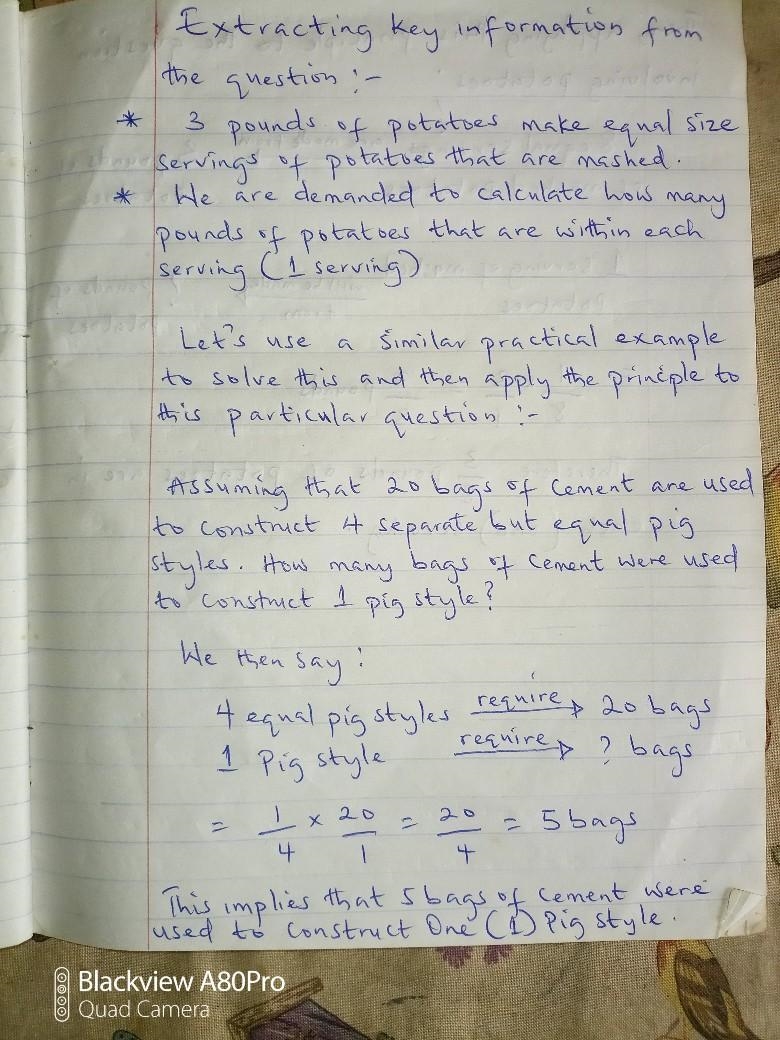 Extracting key information from
the question :-
* 3 pounds of potatoes make equal size
servings of potatoes that are mashed.
* We are demanded to calculate how many
pounds of potatoes that are within each
serving (1 serving)
Let's use a similar practical example
to solve this and then apply the principle to
this particular question :-
Assuming that 20 bags of cement are used
to construct 4 separate but equal pig
styles. How many bags of cement were used
to construct 1 pig style?
We then say :
4 equal pig styles require → 20 bags
1 Pig style require → ? bags
= 1/4 × 20/1 = 20/4 = 5 bags
This implies that 5 bags of cement were
used to construct One (1) Pig style.
Blackview A80Pro
Quad Camera